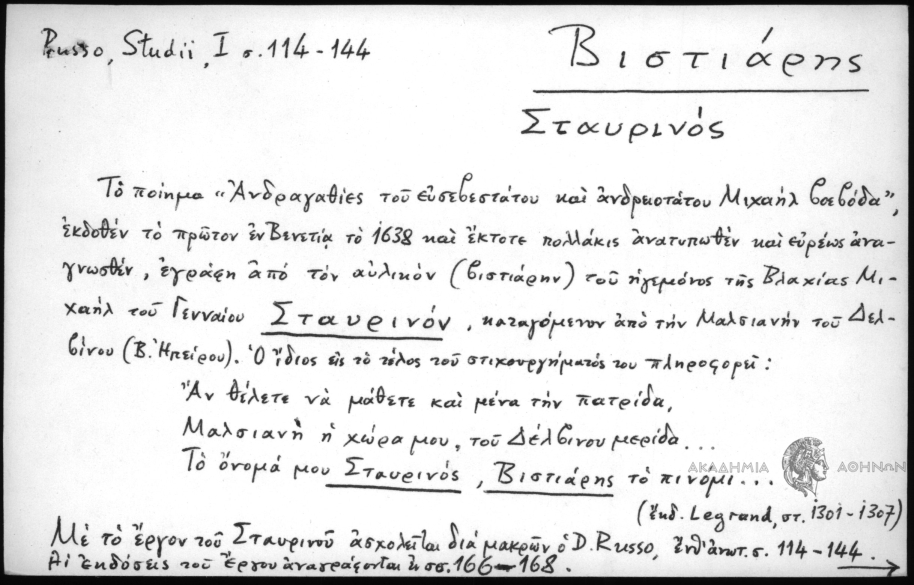 Russo, Studii, I σ. 114-144
Βιστιάρης
Σταυρινός
Τὸ ποίημα «Ἀνδραγαθίες τοῦ εὐσεβεστάτου καὶ ἀνδρειοτάτου Μιχαὴλ βοεβόδα",
ἐκδοθὲν τὸ πρῶτον ἐν Βενετίᾳ τὸ 1638 καὶ ἔκτοτε πολλάκις ἀνατυπωθὲν καὶ εὐρέως ἀνα-
γνωσθέν, ἐγράφη ἀπὸ τὸν αὐλικὸν (βιστιάρην) τοῦ ἡγεμόνος τῆς Βλαχίας Μι-
χαὴλ τοῦ Γενναίου Σταυρινόν, καταγόμενον ἀπὸ τὴν Μαλσιανὴν τοῦ Δελ-
βίνου (Β. Ἠπείρου). Ὁ ἴδιος εἰς τὸ τέλος τοῦ στιχουργήματός του πληροφορεῖ:
Ἂν θέλετε νὰ μάθετε καὶ μένα τὴν πατρίδα,
Μαλσιανὴ ἡ χώρα μου, τοῦ Δέλβινου μερίδα...
Τὸ ὄνομά μου Σταυρινός, Βιστιάρης τὸ πινομι...
ΑΚΑΔΗΜΙΑ ΑΘΗΝΩΝ
(ἔκδ. Legrand, στ. 1301-1307)
Μὲ τὸ ἔργον τοῦ Σταυρινοῦ ἀσχολεῖται διὰ μακρῶν ὁ D. Russo, ἔνθ' ἀνωτ. σ. 114-144.
Αἱ ἐκδόσεις τοῦ ἔργου ἀναγράφονται σσ. 166-168.